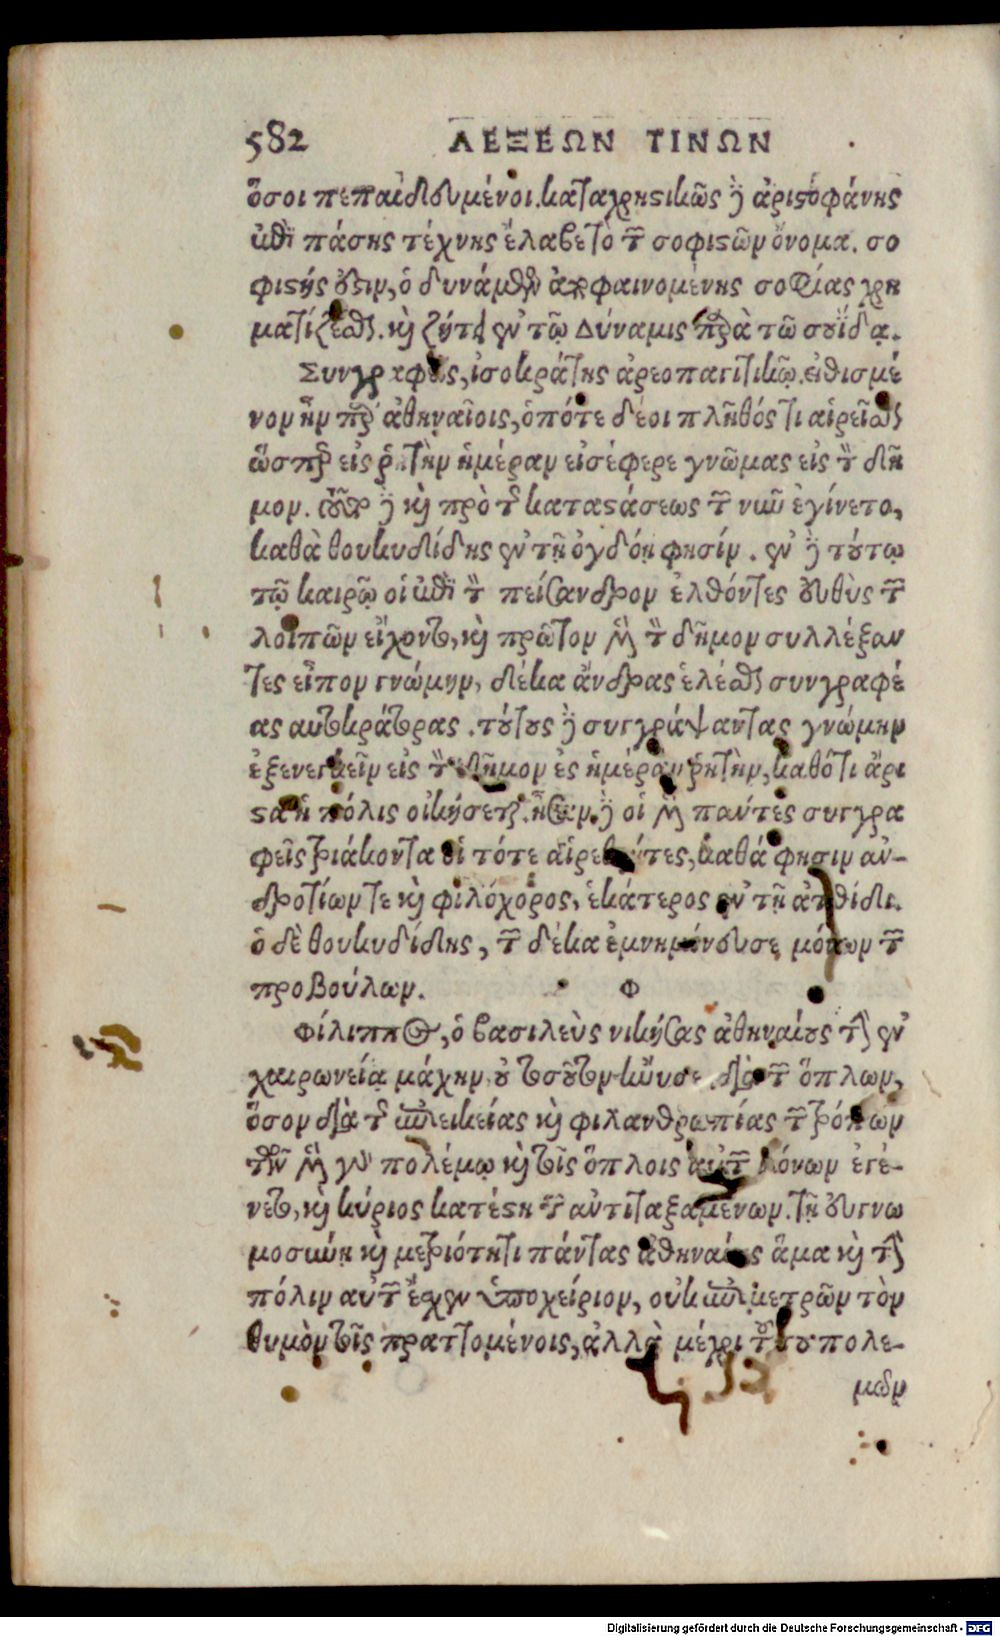 582 ΛΕΞΕΩΝ ΤΙΝΩΝ
ὅσοι πεπαιδευμένοι. καταχρηστικῶς δὲ ἀριστοφάνης
ἐπὶ πάσης τέχνης ἔλαβε τὸ τῶν σοφιστῶν ὄνομα. σο
φιστής ἐστιν, ὁ δυνάμενος ἀπὸ φαινομένης σοφίας χρη
ματίζεσθαι. καὶ ζήτει ἐν τῷ Δύναμις παρὰ τῶ σουΐδᾳ.
Συνγραφεῖς, ἰσοκράτης ἀρεοπαγιτικῷ. εἰθισμέ
νον ἦν παρ' ἀθηναῖοις, ὁπότε δέοι πλῆθός τι αἱρεῖσθαι
ὥσπερ εἰς ῥητὴν ἡμέραν εἰσέφερε γνῶμας εἰς τὸν δῆ
μον. τοῦτο δὲ καὶ πρὸ τῆς καταστάσεως τῶν νῦν ἐγίνετο,
καθὰ θουκυδίδης ἐν τῇ ὀγδόῃ φησίν. ἐν δὲ τούτῳ
τῷ καιρῷ οἱ ἐπὶ τὸν πείσανδρον ἐλθόντες εὐθὺς τῶν
λοιπῶν εἴχοντο, καὶ πρῶτον μὲν τὸν δῆμον συλλέξαν
τες εἶπον γνώμην, δέκα ἄνδρας ἑλέσθαι συνγραφέ
ας αυτοκράτορας. τούτους δὲ συγγράψαντας γνώμην
ἐξενεγκεῖν εἰς τὸν δῆμον ἐς ἡμέραν ῥητὴν, καθότι ἄρι
στα ἡ πόλις οἰκήσεται. ἦσαν δὲ οἱ μὲν πάντες συγγρα
φεῖς τριάκοντα οἱ τότε αἱρεθέντες, καθά φησιν ἀν-
δροτίων τε καὶ φιλόχορος, ἑκάτερος ἐν τῇ ἀτθίδι.
ὁ δὲ θουκυδίδης, τῶν δέκα ἐμνημόνευσε μόνων τῶν
προβούλων. Φ
Φίλιππος, ὁ βασιλεὺς νικήσας ἀθηναίους τὴν ἐν
χαιρωνείᾳ μάχην, οὐ τοσοῦτον ἤνυσε διὰ τῶν ὅπλων,
ὅσον διὰ τῆς ἐπιεικείας καὶ φιλανθρωπίας τῶν τρόπων
τῶν μὲν γὰρ πολέμῳ καὶ τοῖς ὅπλοις αὐτῶν μόνων ἐγέ-
νετο, καὶ κύριος κατέστη τῶν ἀντιταξαμένων. τῇ εὐγνω
μοσύνῃ καὶ μετριότητι πάντας ἀθηναίους ἅμα καὶ τὴν
πόλιν αὐτῶν ἔσχεν ὑποχείριον, οὐκ ἐπιμετρῶν τὸν
θυμὸν τοῖς πραττομένοις, ἀλλὰ μέχρι τούτου πολε-
μῶν
Digitalisierung gefördert durch die Deutsche Forschungsgemeinschaft - DFG